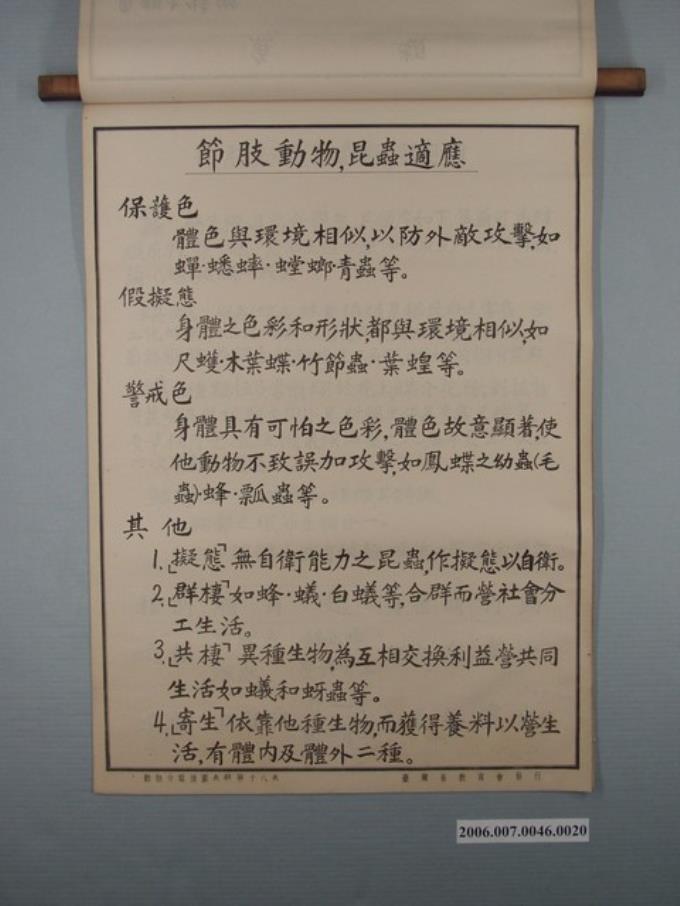 節肢動物,昆蟲適應
保護色
體色與環境相似,以防外敵攻擊,如
蟬·蟋蟀·螳螂·青蟲等。
假擬態
身體之色彩和形狀,都與環境相似,如
尺蠖·木葉蝶·竹節蟲·葉蝗等。
警戒色
身體具有可怕之色彩,體色故意顯著,使
他動物不致誤加攻擊,如鳳蝶之幼蟲(毛
蟲)·蜂·瓢蟲等。
其他
1.「擬態」無自衛能力之昆蟲,作擬態以自衛。
2.「群棲」如蜂·蟻·白蟻等,合群而營社會分
工生活。
3.「共棲」異種生物,為互相交換利益營共同
生活如蟻和蚜蟲等。
4.「寄生」依靠他種生物,而獲得養料以營生
活,有體內及體外二種。
臺灣省教育會發行
2006.007.0046.0020